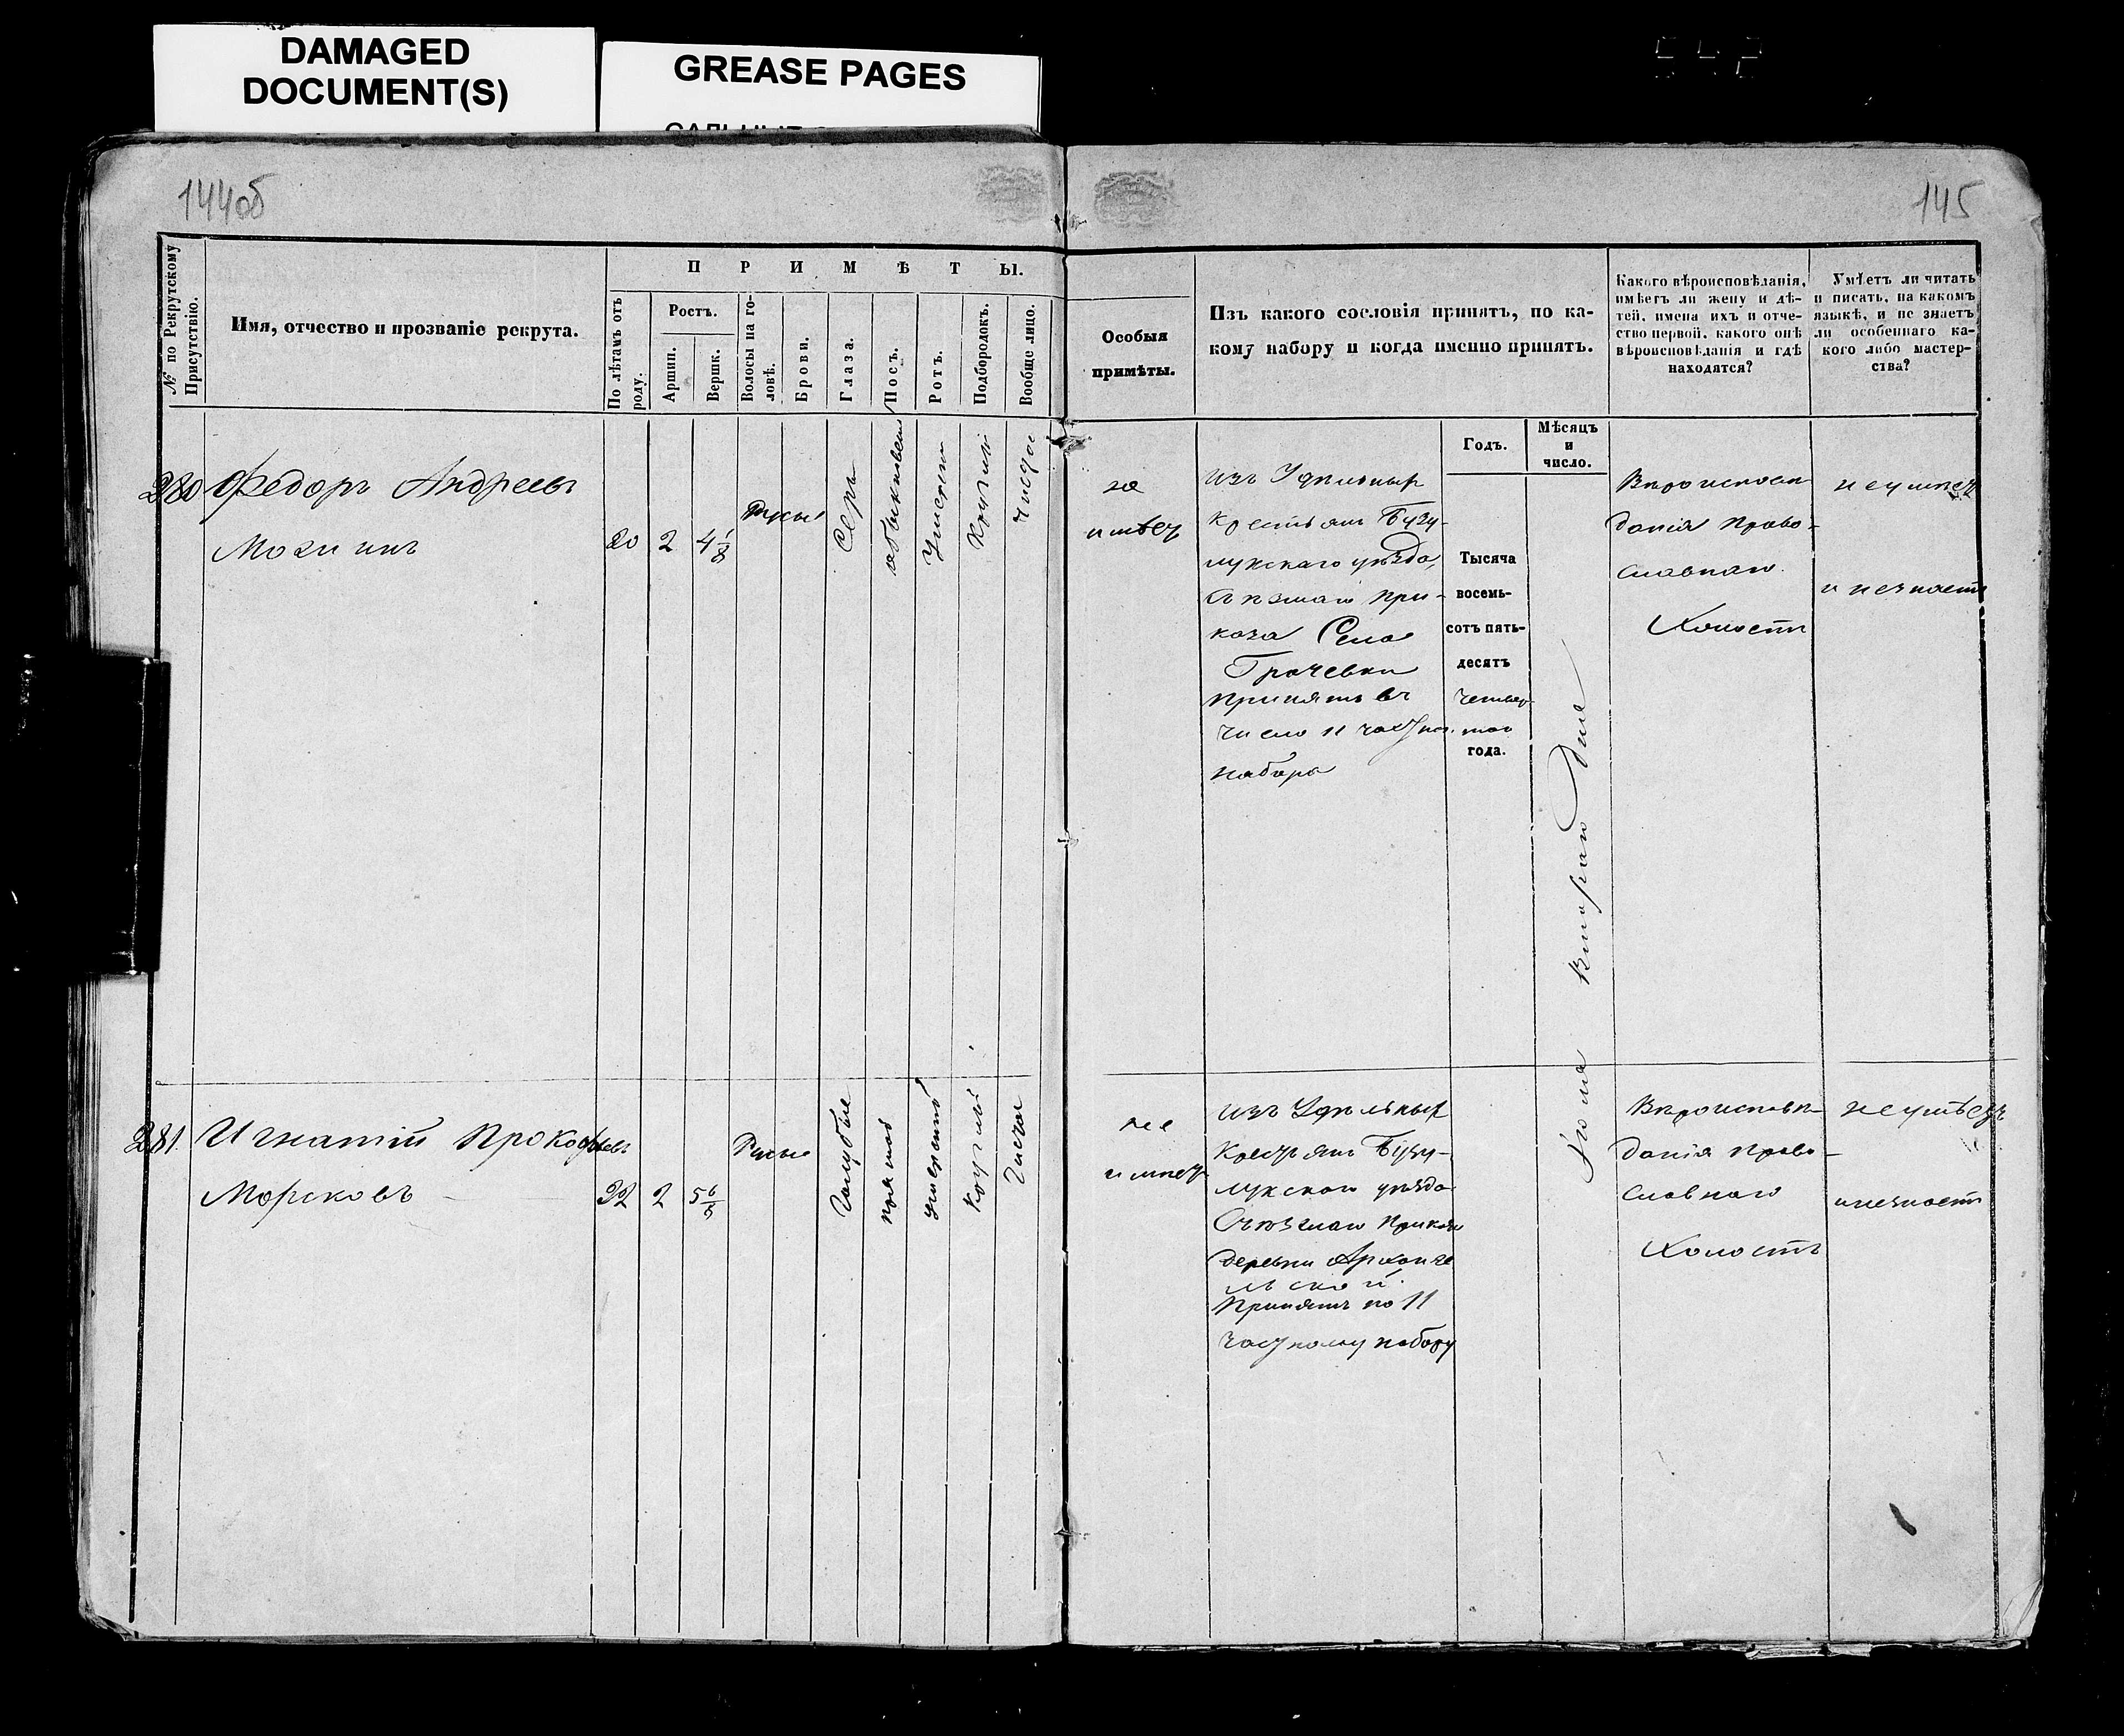 DAMAGED
DOCUMENT(S)
GREASE PAGES
144об
145
№ по Рекрутскому
Присутствію.
Имя, отчество и прозваніе рекрута.
ПРИМѢТЫ.
По лѣтамъ отъ
роду.
Ростъ.
Аршин.
Вершк.
Волосы на го-
ловѣ.
Брови.
Глаза.
Носъ.
Ротъ.
Подбородокъ.
Вообще лицо.
Особыя
примѣты.
Изъ какого сословія принятъ, по ка-
кому набору и когда именно принятъ.
Какого вѣроисповѣданія,
имѣетъ ли жену и дѣ-
тей, имена ихъ и отче-
ство первой, какого онѣ
вѣроисповѣданія и гдѣ
находятся?
Умѣетъ ли читать
и писать, на какомъ
языкѣ, и не знаетъ
ли особеннаго ка-
кого либо мастер-
ства?
Годъ.
Мѣсяцъ
и
число.
280
Федоръ Андреевъ
Мохинъ
20
2
4 1/8
Русые
Серы
Умерен
Кругли
Чисто
не
имѣет
Изъ Удельных
Крестьян Бузу-
лукскаго уѣзда,
При-
каза Села
Грачевки
Принятъ въ
число 11 част.
набора
Тысяча
восемь-
сотъ пять-
десятъ
четвер-
таго
года.
Іюля втораго дня
Вѣроиспове-
данія Право-
славнаго.
Холостъ
неумеет
и незнаетъ
281
Игнатій Прокофьевъ
Морсковъ
22
2
5 6/8
Русые
Голубые
умеренный
Круглый
Чистое
не
имеет
Изъ Удельных
Крестьян Бузу-
лукскаго уѣзда
Приказа
деревни Арханге
льской.
Принятъ по 11
частному набору
Вероисповѣ-
данія Право-
славнаго
Холостъ
неумѣетъ
инезнаетъ